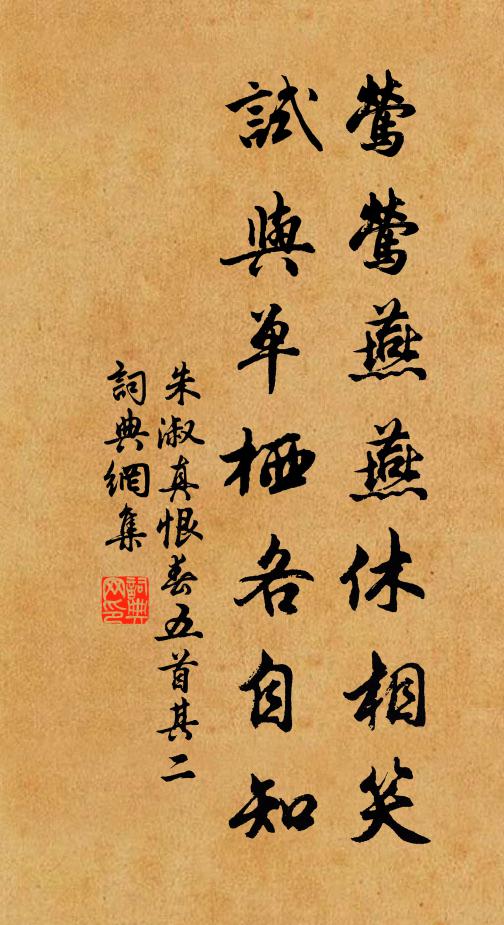 鶯鶯燕燕休相笑
試與单栖各自知
朱淑真恨春五首其二
詞典網集
詞典網印